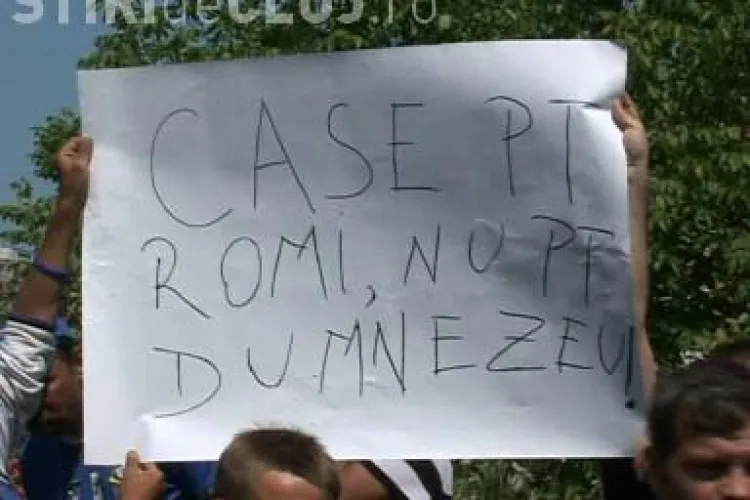 STIRIdeCLUJ.ro
CASE PT
ROMI, NU PT
DUMNEZEU!